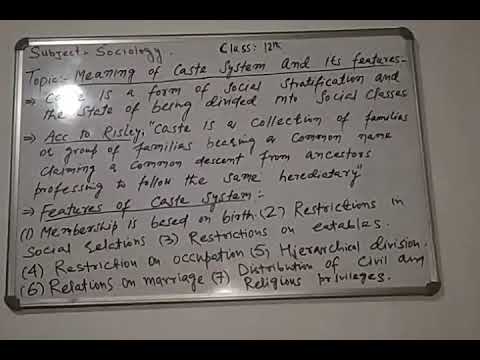 Subject:- Sociology. Class: 12th
Topic:- Meaning of Caste System and Its features-
⇒ Caste is a form of Social Stratification and
the State of being divided into Social Classes
⇒ Acc to Risley, "Caste is a collection of families
or group of families bearing a Common name
claiming a common descent from ancestors
professing to follow the same heredietary"
⇒ Features of Caste System:-
(1) Membership is based on birth. (2) Restrictions in
Social relations (3) Restrictions on eatables.
(4) Restriction on occupation (5) Hierarchical division.
(6) Relations on marriage (7) Distribution of Civil and
Religious privileges.